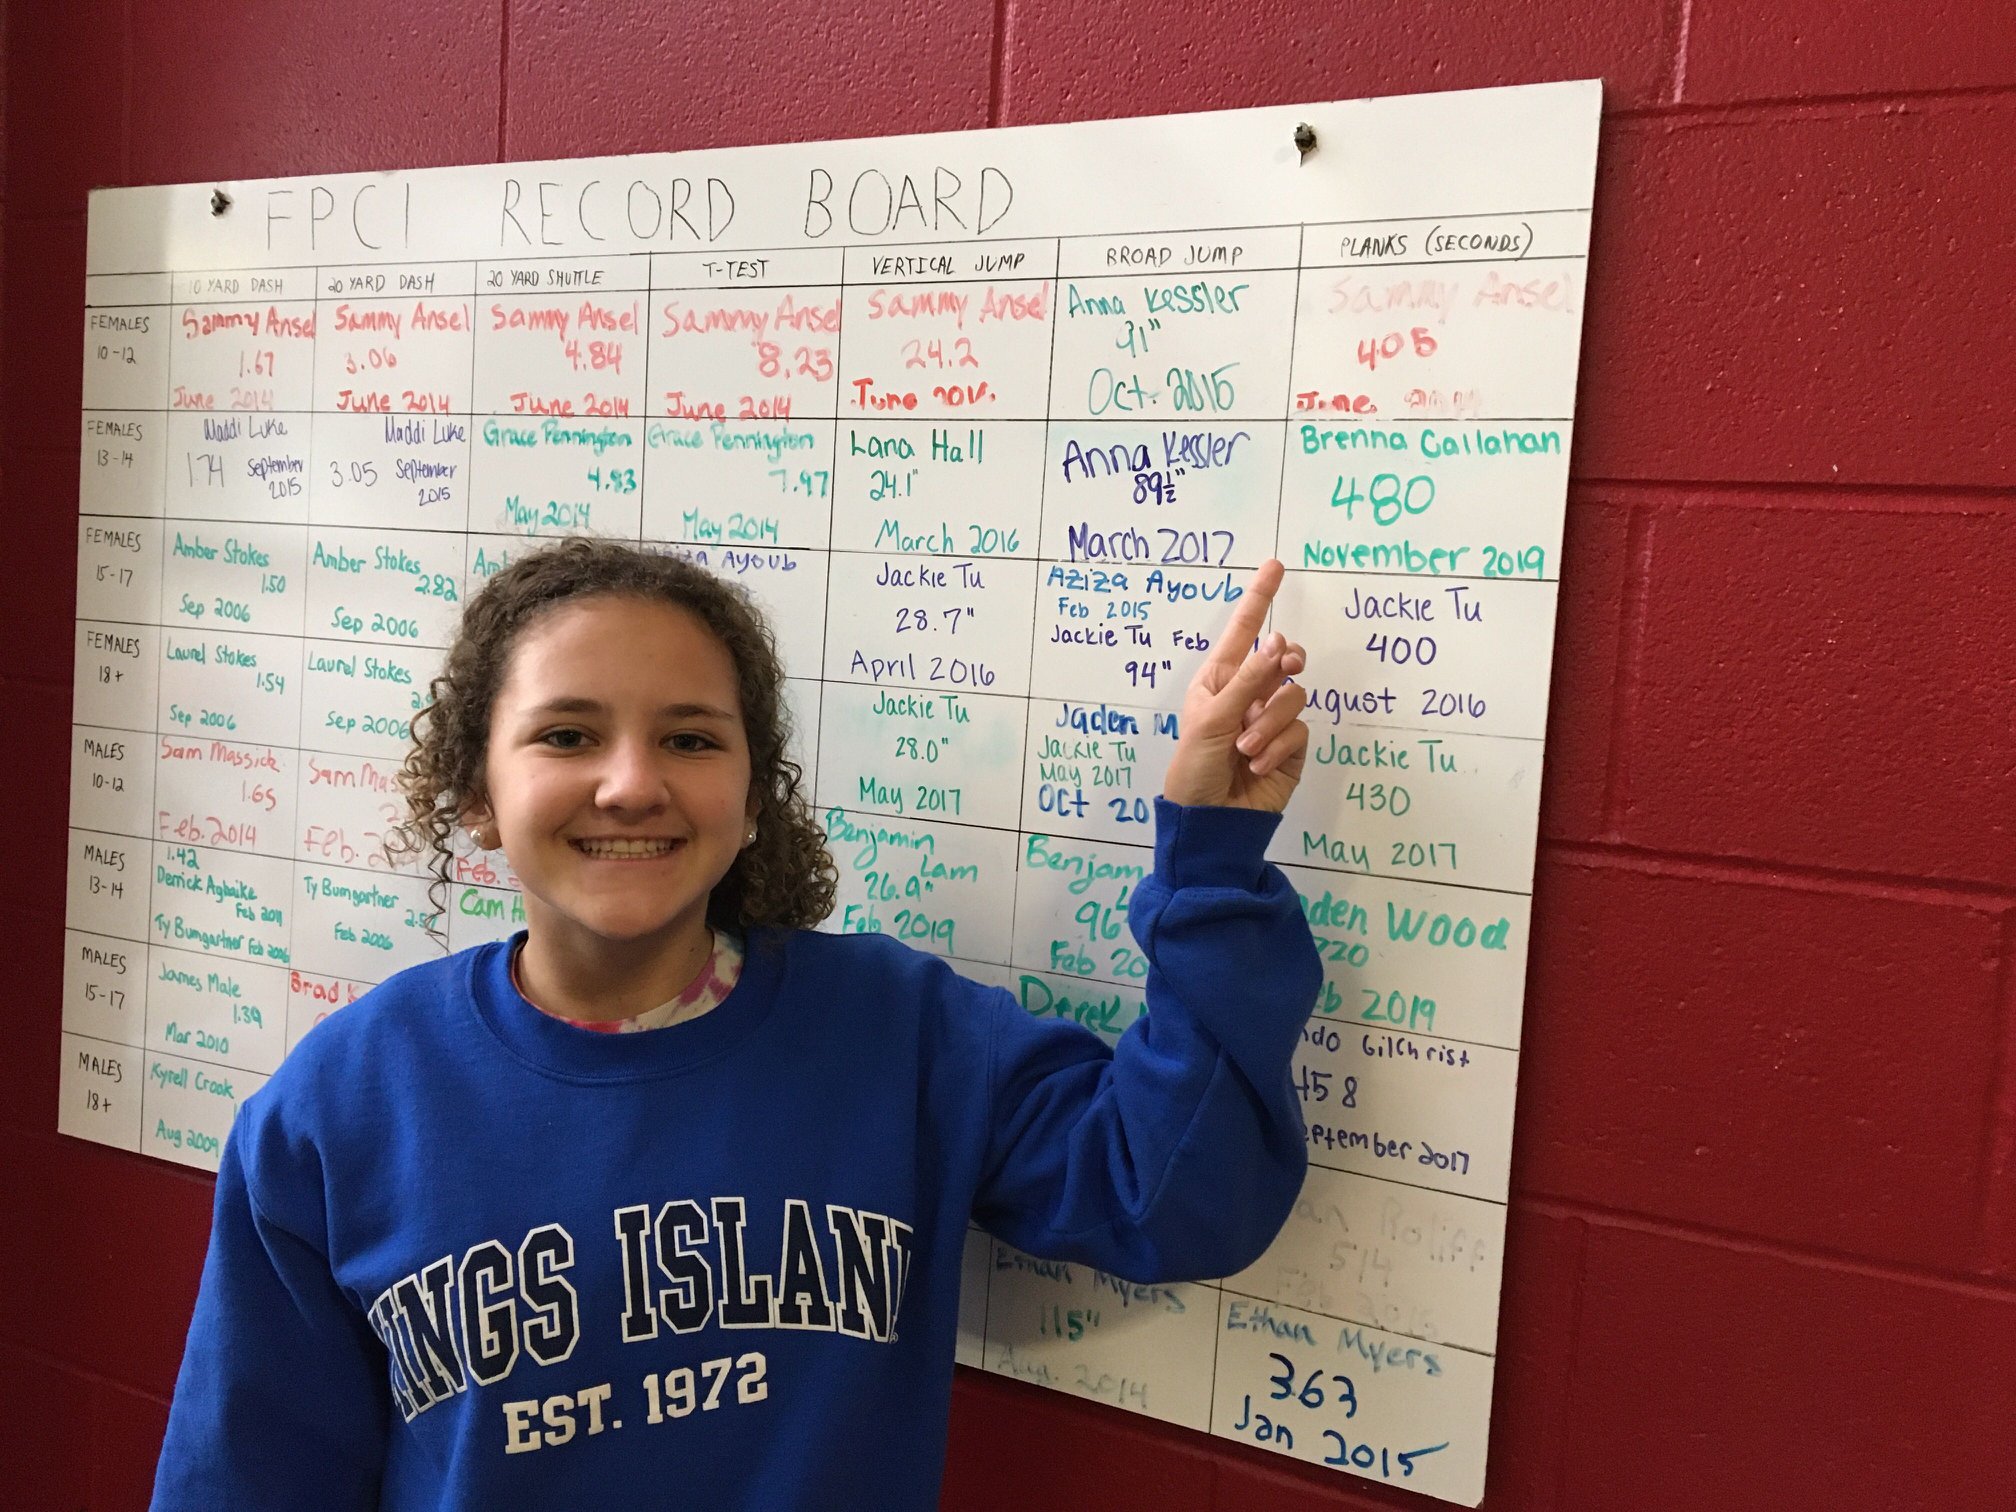 FPCI RECORD BOARD
10 YARD DASH 20 YARD DASH 20 YARD SHUTTLE T-TEST VERTICAL JUMP BROAD JUMP PLANKS (SECONDS)
FEMALES
10-12
Sammy Ansel
1.67
June 2014
Sammy Ansel
3.06
June 2014
Sammy Ansel
4.84
June 2014
Sammy Ansel
8.23
June 2014
Sammy Ansel
24.2
June
Anna Kessler
91"
Oct. 2015
Sammy Ansel
405
June
FEMALES
13-14
Maddi Luke
1.74 September
2015
Maddi Luke
3.05 September
2015
Grace Pennington
4.83
May 2014
Grace Pennington
7.97
May 2014
Lana Hall
24.1"
March 2016
Anna Kessler
89½"
March 2017
Brenna Callahan
480
November 2019
FEMALES
15-17
Amber Stokes
1.50
Sep 2006
Amber Stokes
2.82
Sep 2006
Ayoub
Jackie Tu
28.7"
April 2016
Aziza Ayoub
Feb 2015
Jackie Tu Feb
94"
Jackie Tu
400
August 2016
FEMALES
18+
Laurel Stokes
1.54
Sep 2006
Laurel Stokes
Sep 2006
Jackie Tu
28.0"
May 2017
Jaden
Jackie Tu
May 2017
Oct 20
Jackie Tu
430
May 2017
MALES
10-12
Sam Massick
1.65
Feb. 2014
Sam
Feb.
Feb.
Benjamin
Lam
26.9"
Feb 2019
Benjam
96
Feb 20
aden Wood
220
Feb 2019
MALES
13-14
1.42
Derrick Agbaike
Feb 2011
Ty Bumgartner Feb 2006
Ty Bumgartner
Feb 2006
Cam
Derek
ndo Gilchrist
458
eptember 2017
MALES
15-17
James Male
1.39
Mar 2010
Brad K
Roliff
514
Feb 2015
MALES
18+
Kyrell Crook
Aug 2009
Ethan Myers
115"
Aug. 2014
Ethan Myers
363
Jan 2015
KINGS ISLAND
EST. 1972